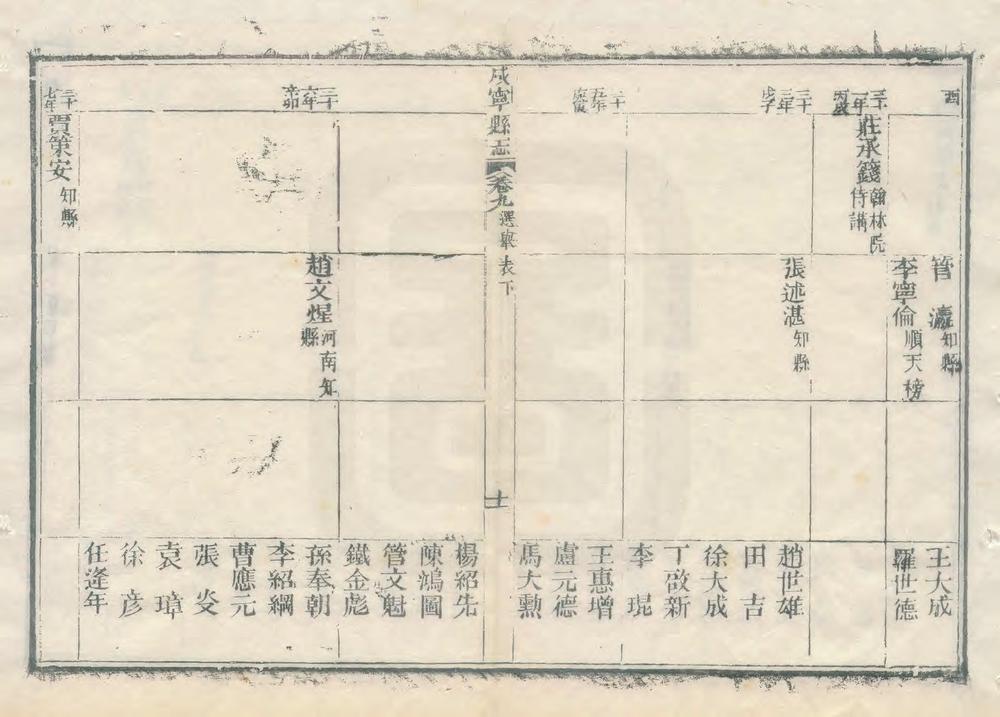 酉
管瀛知縣
李寧倫順天榜
王大成
羅世德
三十一年丙戌
莊承籛翰林院侍講
三十三年戊子
張述湛知縣
趙世雄
田吉
徐大成
丁啟新
李琨
二十五年庚寅
王惠增
盧元德
馬大勲
咸寧縣志
卷九選舉表下
十一
楊紹先
陳鴻圖
管文魁
鐵金彪
三十六年辛卯
趙文煋河南知縣
孫奉朝
李紹綱
曹應元
張炎
袁璋
徐彦
任逢年
三十七年
賈策安知縣